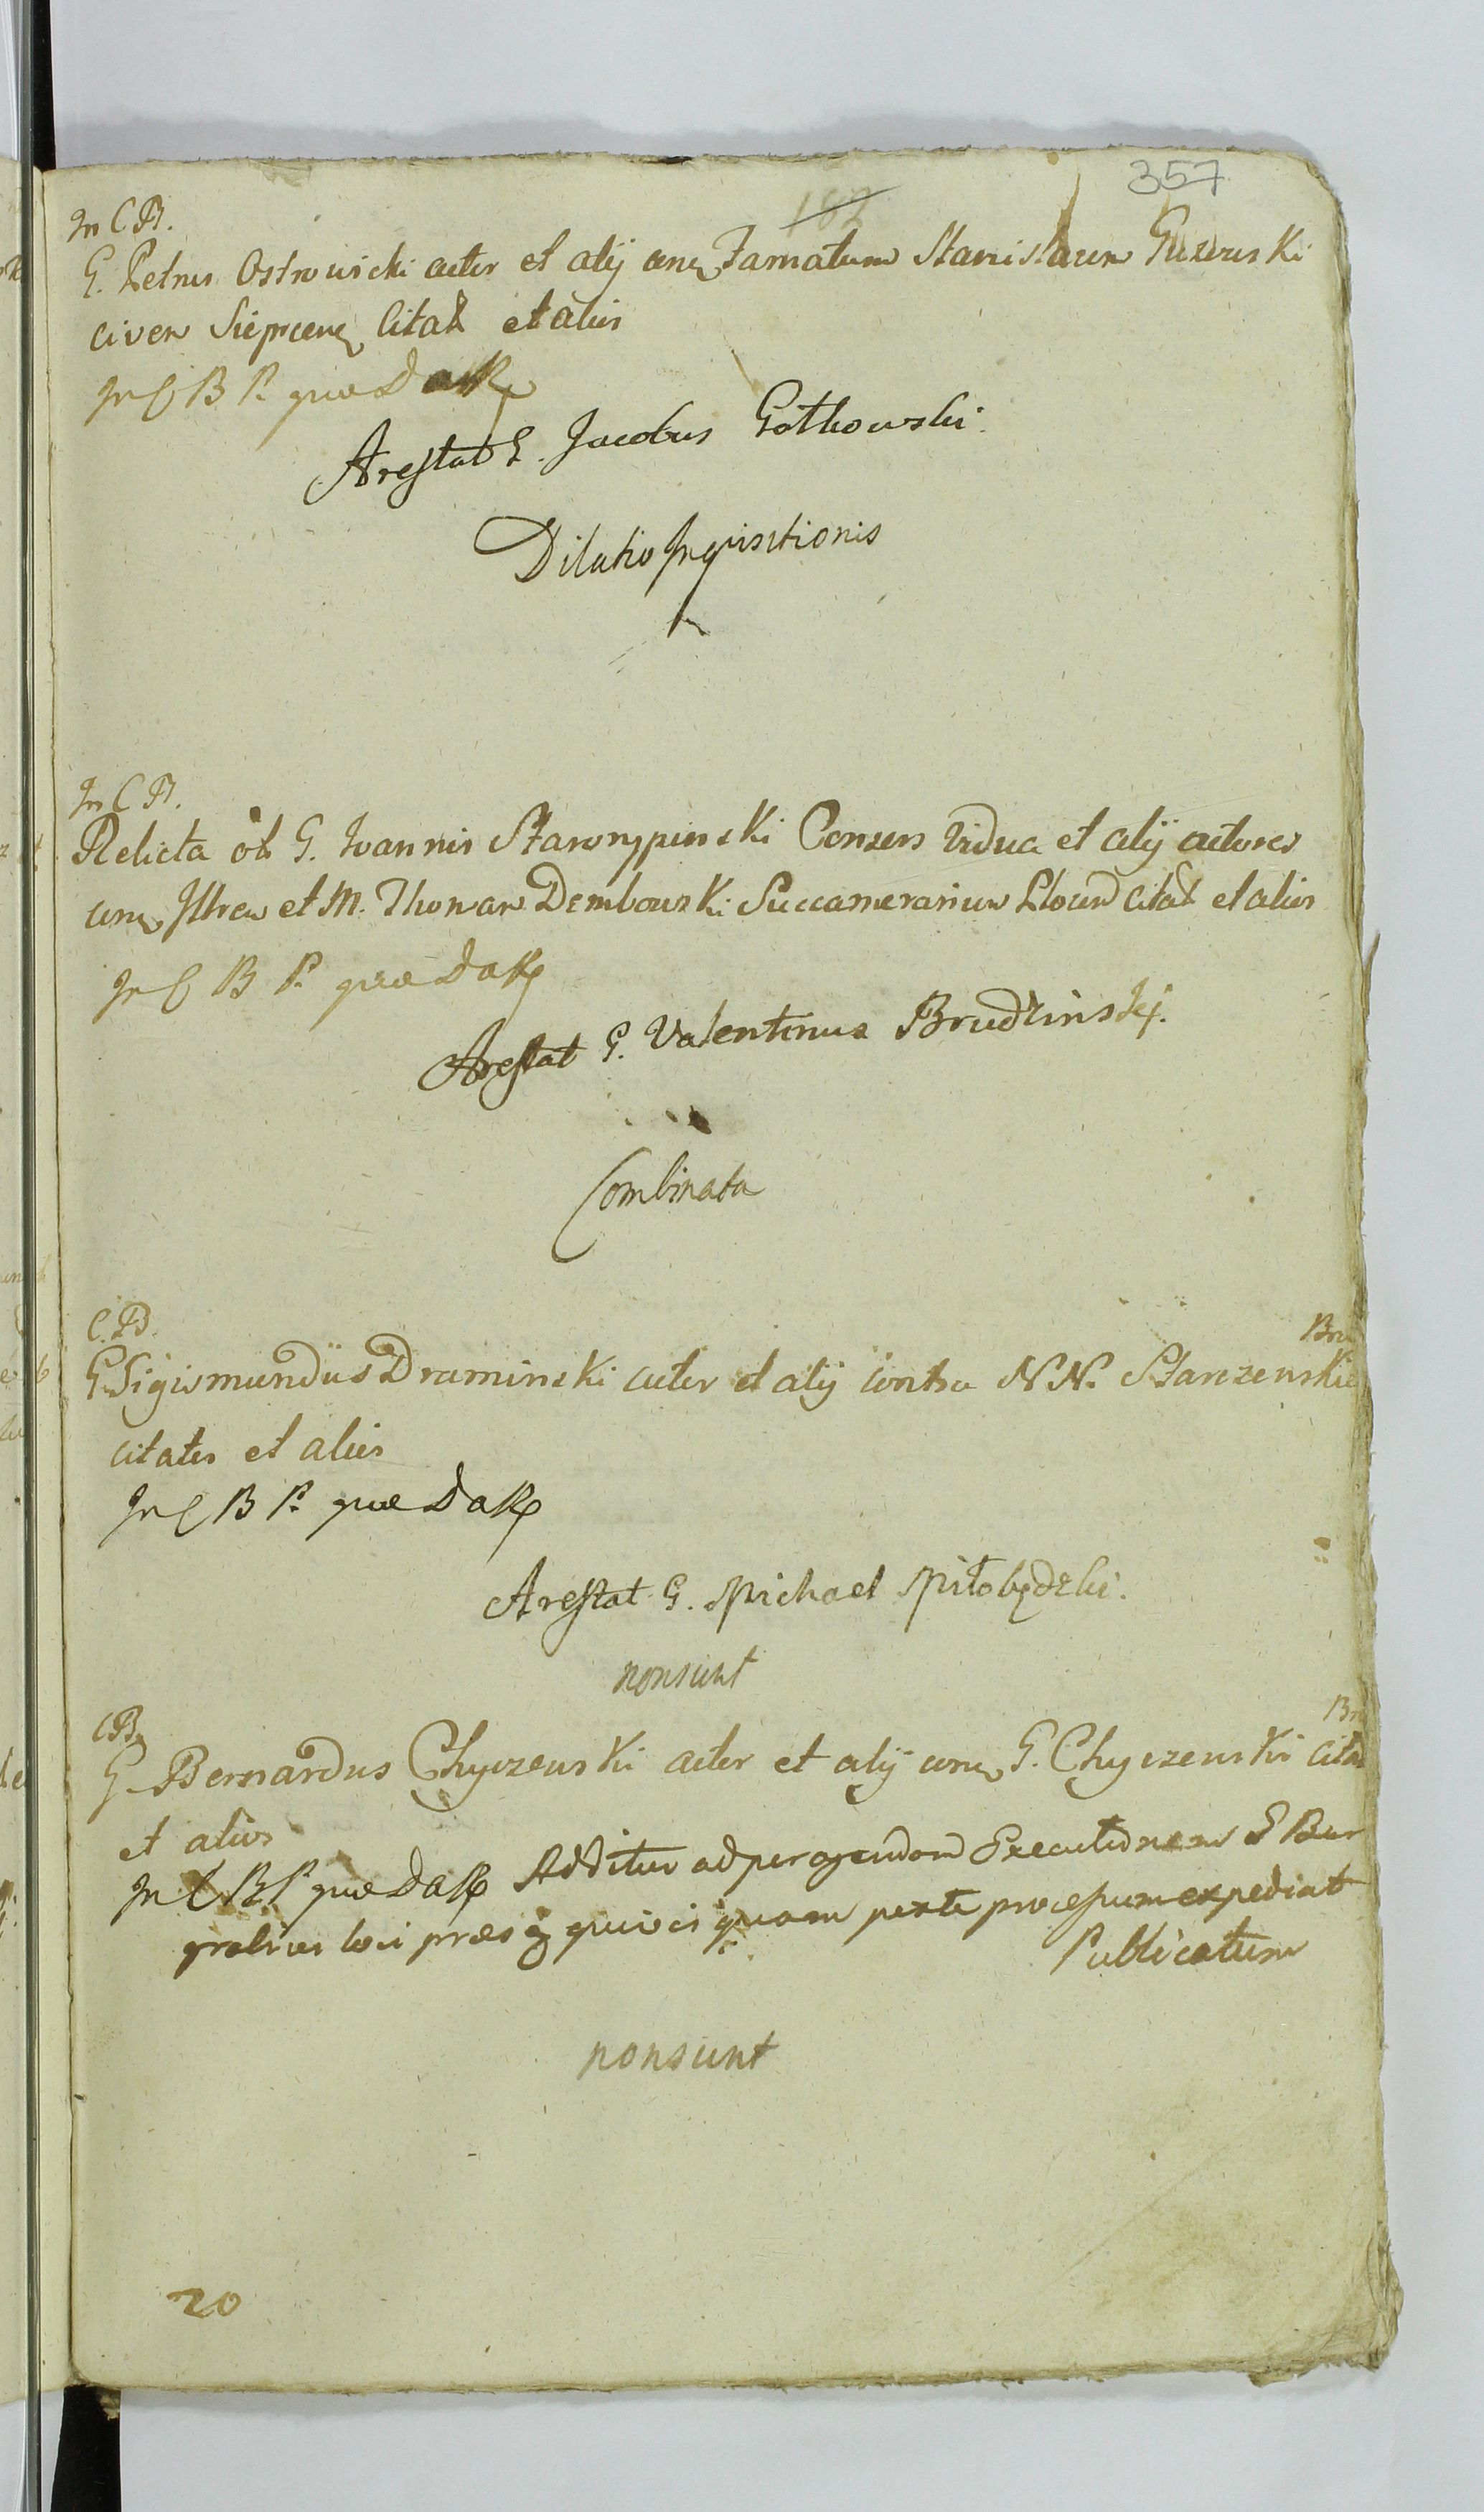 357
182
In C B.
G. Petrus Ostrowicki actor et alij conɋ Famatum Stanislaum Guzowski
civem Siepracenɋ Citat et alios
In C B P. quae
Arestat G. Jacobus Gotkowski.
Dilatio Inquisitionis
In C B.
Relicta ol G. Joannis Starorypinski Consors vidua et alij actores
conɋ Illrem et M. Thomam Dembowski Succamerarium Plocen citat et alios
In C B P. quae
Arestat G. Valentinus Brudzinskj.
Combinata
C. B.
G. Sigismundus Draminski actor et alij contra N N. Starczewskie
citatos et alios
In C B P. quae
Arestat G. Michael Miłobędzki.
nonsunt
C B
G Bernardus Chyczewski actor et alij conɋ G. Chyczewski
et alios
In C B P. quae Additur ad peragendam Executionem G Bur
loci expediat
Publicatum
nonsunt
20